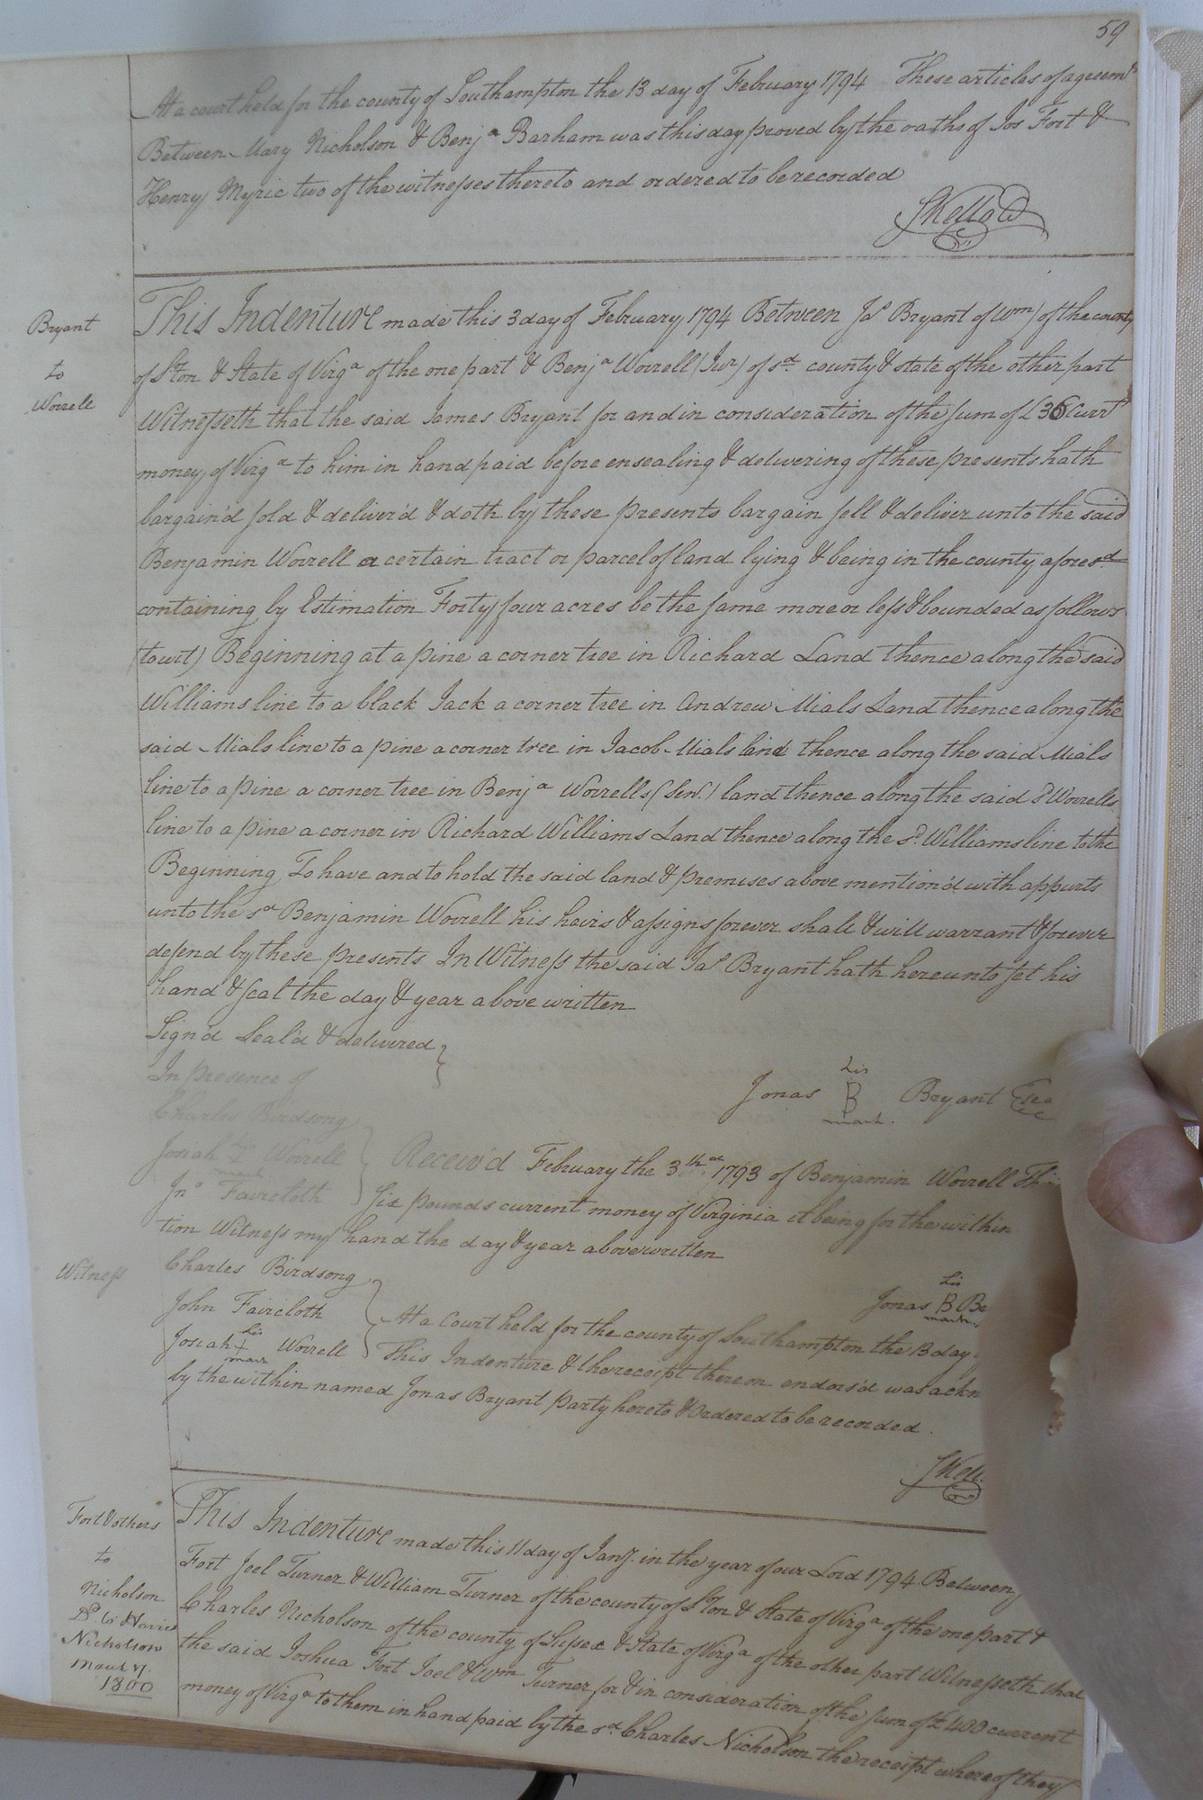 59
At a court held for the county of Southampton the 13 day of February 1794 These articles of agreemts
Between Mary Nicholson & Benja Barham was this day proved by the oaths of Jos Fort &
Henry Myric two of the witnesses thereto and ordered to be recorded
Bryant
to
Worrell
This Indenture made this 3 day of February 1794 Between Jas Bryant of Wm) of the county
of S'ton & State of Virga of the one part & Benja Worrell (Junr) of sd county & state of the other part
Witnesseth that the said James Bryant for and in consideration of the sum of £36 Currt
money of Virga to him in hand paid before ensealing & delivering of these presents hath
bargain'd sold & deliver'd & doth by these presents bargain sell & deliver unto the said
Benjamin Worrell a certain tract or parcel of land lying & being in the county aforesd
containing by Estimation Forty four acres be the same more or less & bounded as follows
(towit) Beginning at a pine a corner tree in Richard Land thence along the said
Williams line to a black Jack a corner tree in Andrew Mials Land thence along the
said Mials line to a pine a corner tree in Jacob Mials land thence along the said Mials
line to a pine a corner tree in Benja Worrells (Senr.) land thence along the said Worrells
line to a pine a corner in Richard Williams Land thence along the sd. Williams line to the
Beginning To have and to hold the said land & premises above mention'd with appurts
unto the sd Benjamin Worrell his heirs & assigns forever shall & will warrant & forever
defend by these presents In Witness the said Jas Bryant hath hereunto set his
hand & seal the day & year above written
Sign'd Seal'd & delivered
In presence of
Jonas his B mark. Bryant
Charles Birdsong
Josiah Worrell
mark
Jno Faircloth
Receiv'd February the 3th 1793 of Benjamin Worrell
Six pounds current money of Virginia it being for the within
tion Witness my hand the day & year above written
Witness
Charles Birdsong
John Faircloth
Josiah his mark Worrell
Jonas his B mark
At a Court held for the county of Southampton the 13 day
This Indenture & the receipt thereon endors'd was ackn
by the within named Jonas Bryant party hereto & Ordered to be recorded.
Fort & others
to
Nicholson
Nicholson
1800
This Indenture made this 11 day of Jany. in the year of our Lord 1794 Between
Fort Joel Turner & William Turner of the county of S'ton & State of Virga of the one part &
Charles Nicholson of the county of Sussex & State of Virga of the other part Witnesseth that
the said Joshua Fort Joel & Wm Turner for & in consideration of the sum of £400 current
money of Virga to them in hand paid by the sd. Charles Nicholson the receipt whereof they